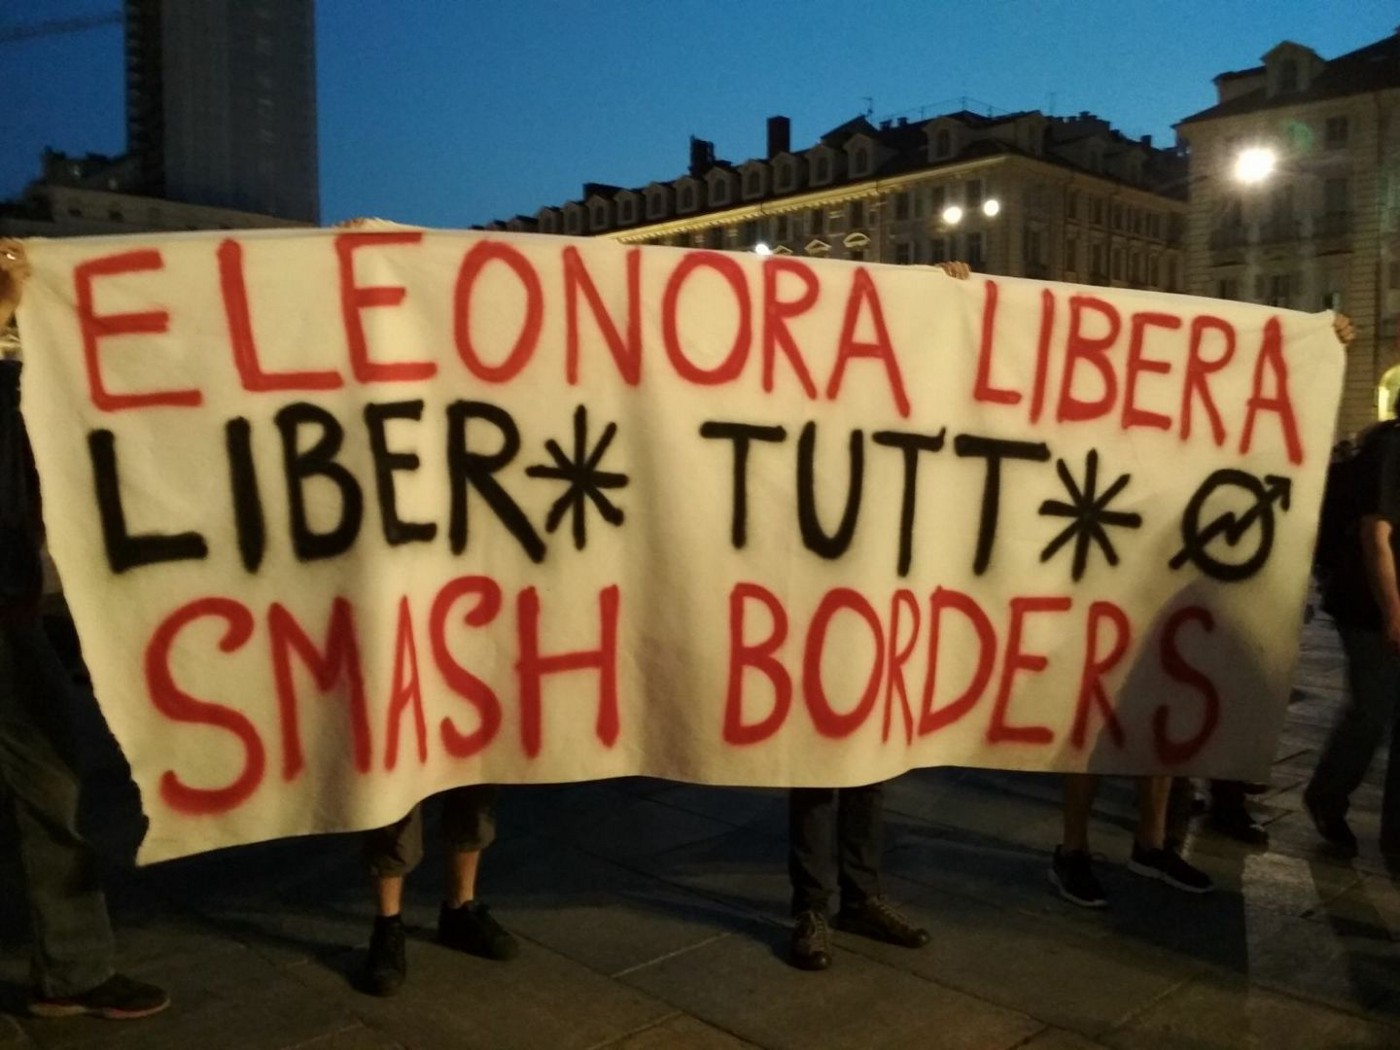 ELEONORA LIBERA
LIBER* TUTT*
SMASH BORDERS